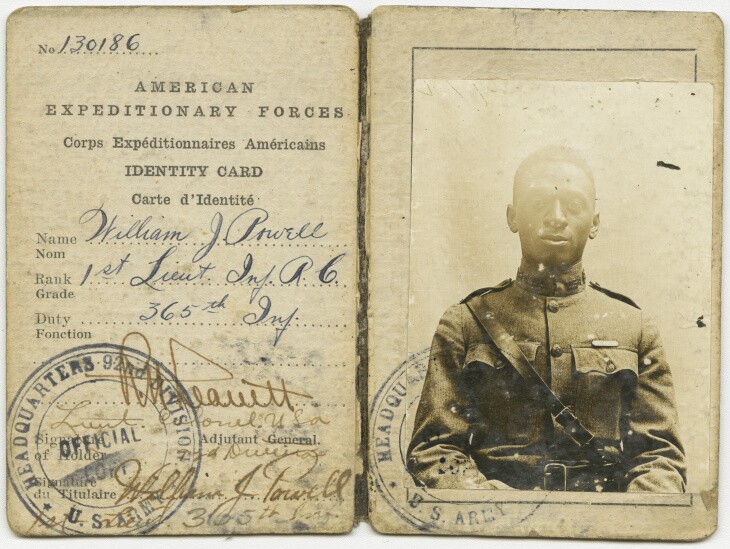 No 130186
AMERICAN
EXPEDITIONARY FORCES
Corps Expéditionnaires Américains
IDENTITY CARD
Carte d'Identité
Name William J. Powell
Nom
Rank 1st Lieut Inf. R C.
Grade
Duty 365th Inf.
Fonction
HEADQUARTERS 92nd DIVISION
OFFICIAL
U.S. ARMY
Lieut. Colonel. USA
Signature
of Holder
Adjutant General.
Division
Signature
du Titulaire William J. Powell
1st Lieut. 365th Inf.
HEADQU
U.S. ARMY